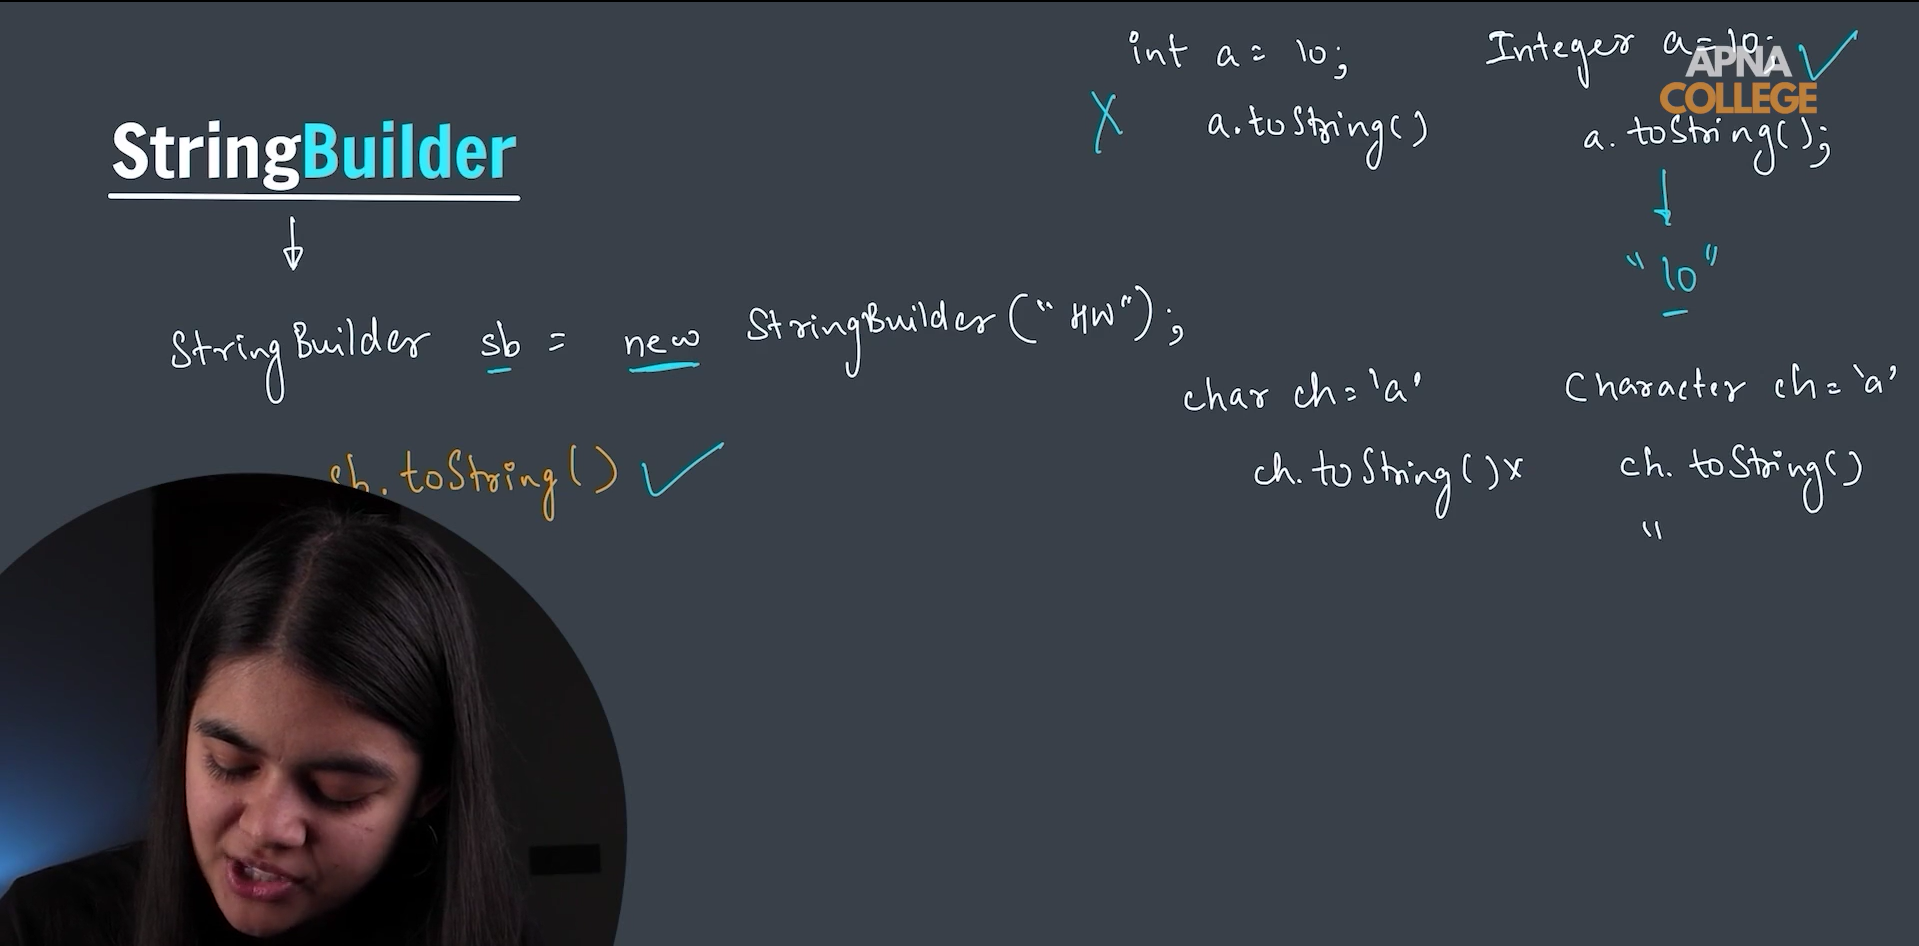 StringBuilder
StringBuilder sb = new StringBuilder("HW");
sb.toString()
int a = 10;
a.toString()
Integer a=10;
APNA
COLLEGE
a.toString();
"10"
char ch='a'
ch.toString() x
Character ch='a'
ch.toString()
"